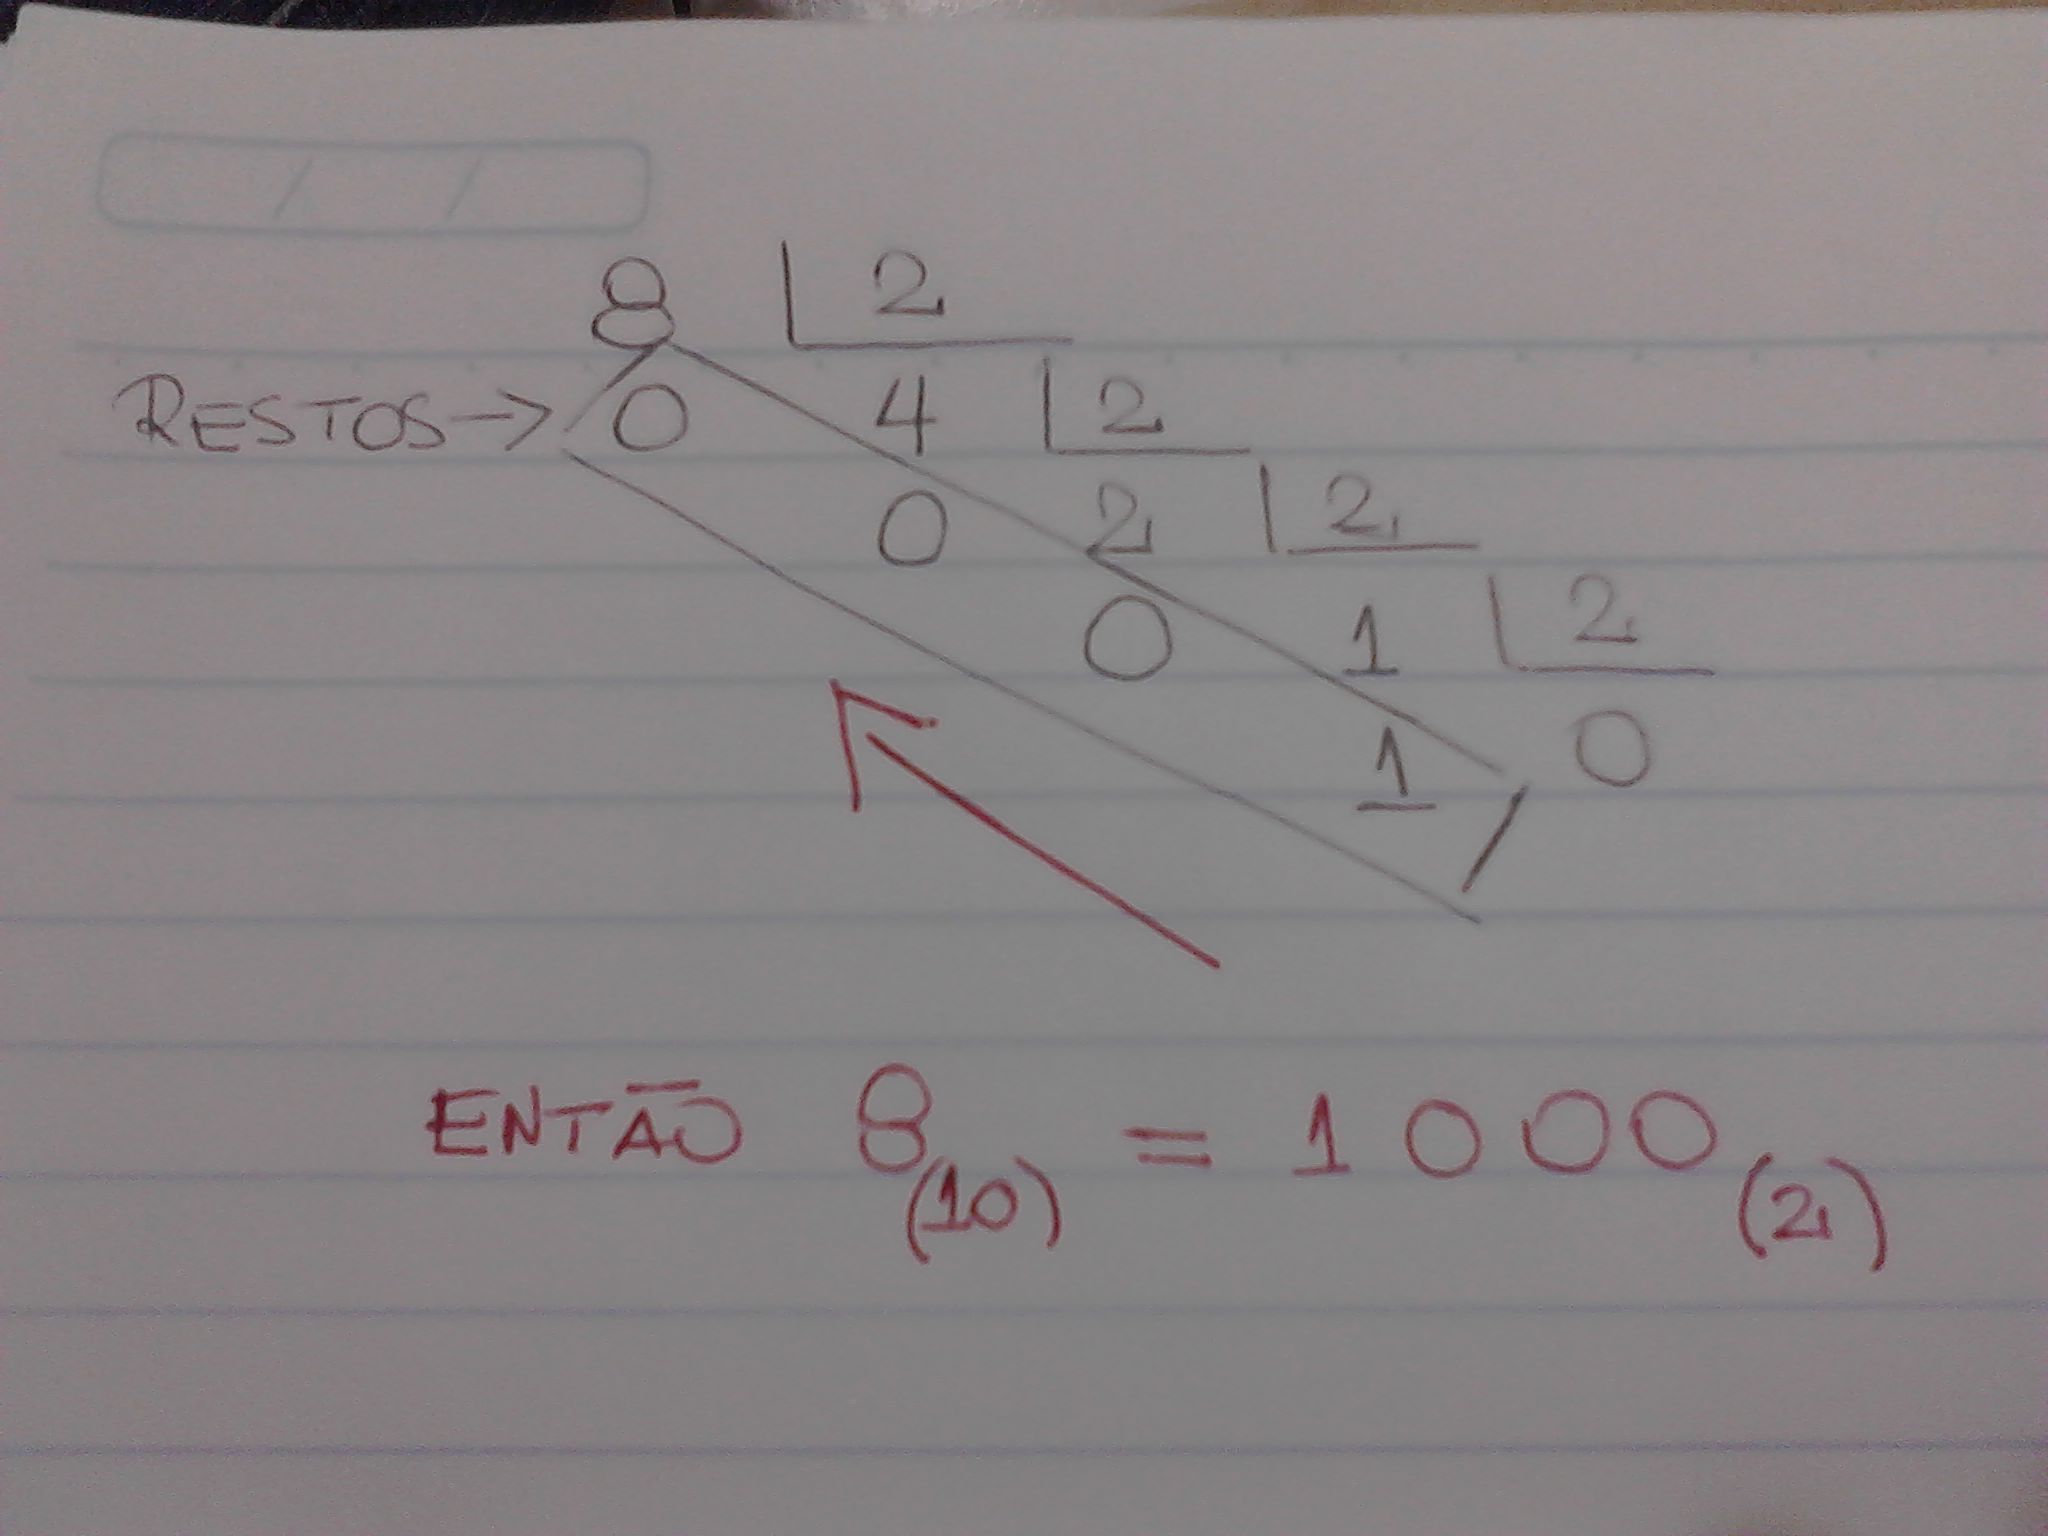 8 2
RESTOS → 0 4 2
0 2 2
0 1 2
1 0
ENTÃO 8(10) = 1000(2)